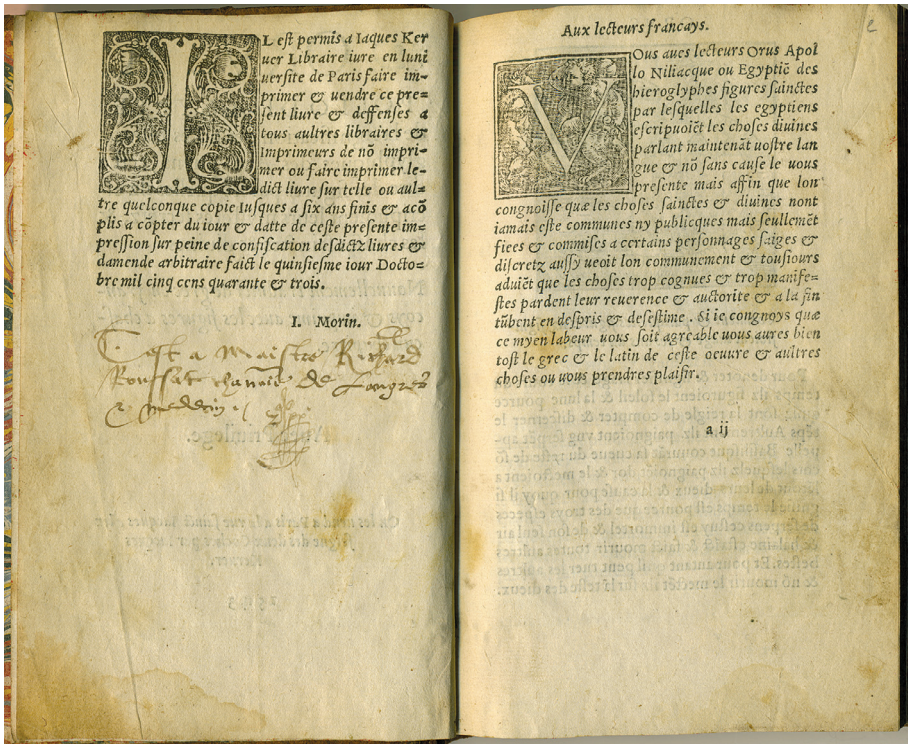 IL est permis a Iaques Ker
uer Libraire iure en luni
uersite de Paris faire im-
primer & uendre ce pre-
sent liure & deffenses a
tous aultres libraires &
Imprimeurs de nõ impri-
mer ou faire imprimer le-
dict liure sur telle ou aul-
tre quelconque copie Iusques a six ans finis & acõ
plis a cõpter du iour & datte de ceste presente im-
pression sur peine de confiscation desdictz liures &
damende arbitraire faict le quinsiesme iour Docto-
bre mil cinq cens quarante & trois.
I. Morin.
C'est a Maistre Richard
Roussat chanoine de Langres
& medecin
Aux lecteurs francays.
2
VOus aues lecteurs Orus Apol
lo Niliacque ou Egyptiẽ des
hieroglyphes figures sainctes
par lesquelles les egyptiens
escripuoiẽt les choses diuines
parlant maintenãt uostre lan
gue & nõ sans cause le uous
presente mais affin que lon
congnoisse quæ les choses sainctes & diuines nont
iamais este communes ny publicques mais seullemẽt
fiees & commises a certains personnages saiges &
discretz aussy ueoit lon communement & tousiours
aduiẽt que les choses trop cognues & trop manife-
stes pardent leur reuerence & auctorite & a la fin
tũbent en despris & desestime. Si ie congnoys quæ
ce myen labeur uous soit agreable uous aures bien
tost le grec & le latin de ceste oeuure & aultres
choses ou uous prendres plaisir.
a ij